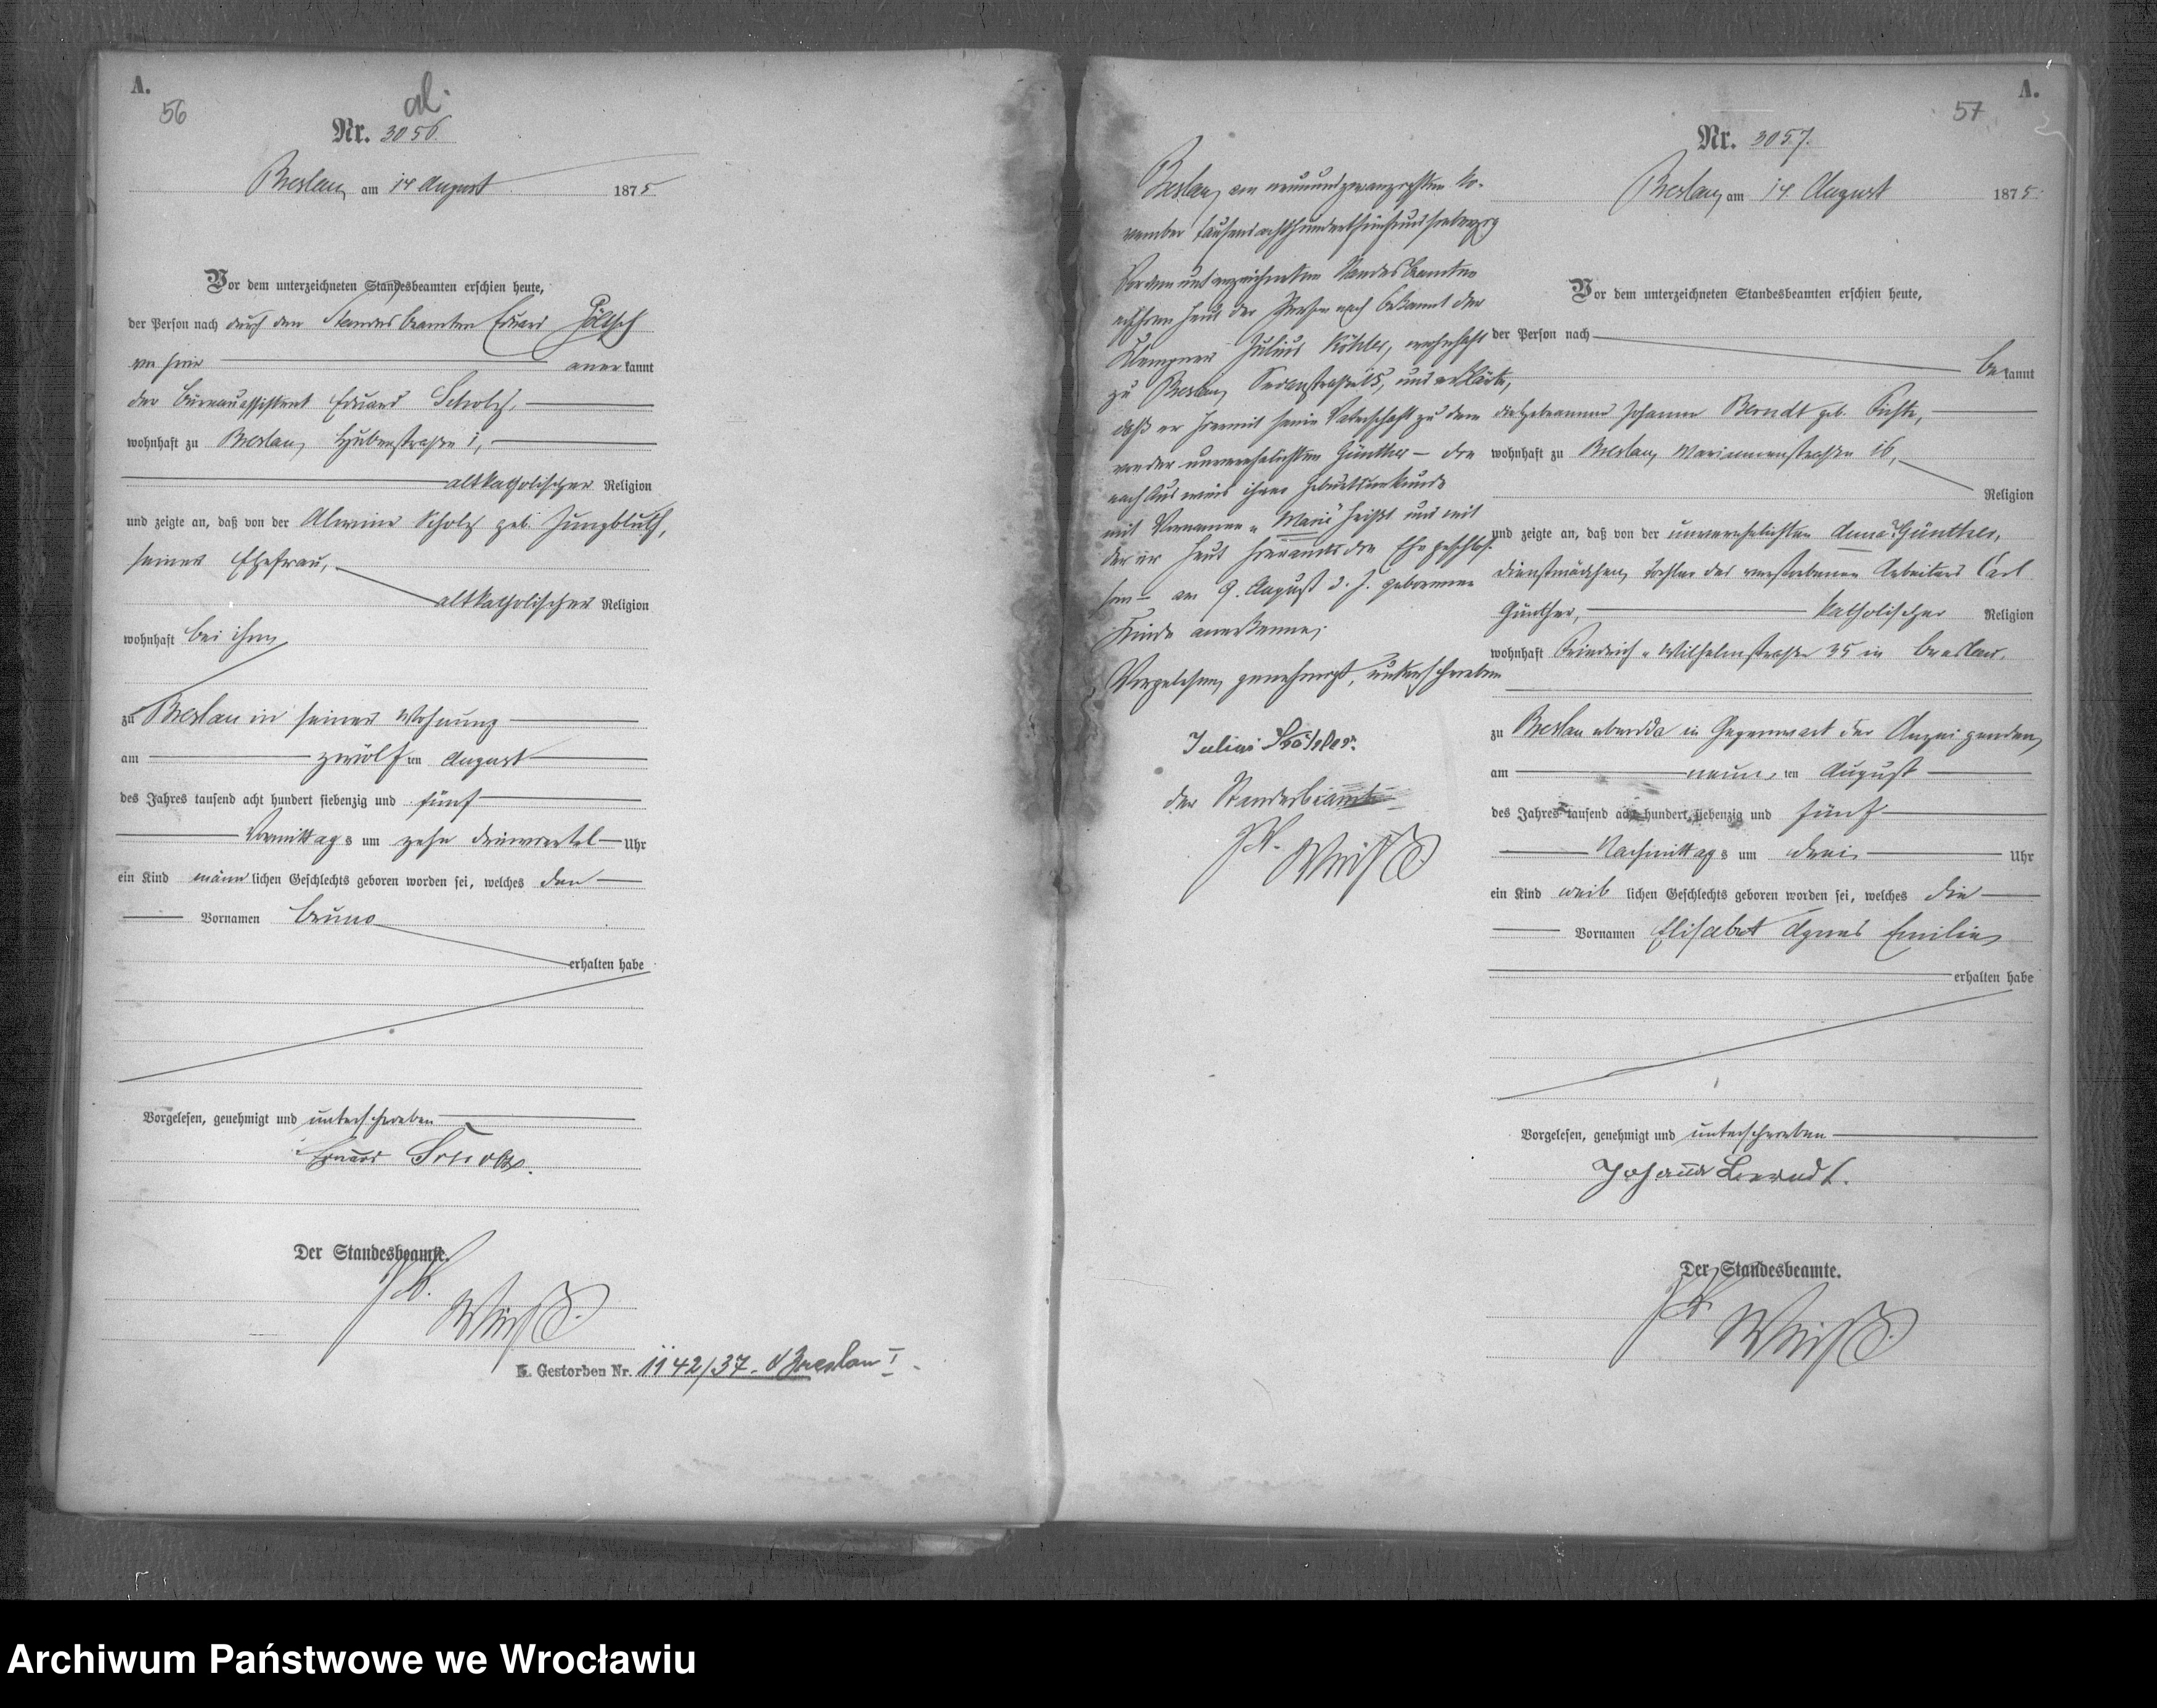 A.
56
al.
Nr. 3056.
Breslau, am 14 August 1875
Vor dem unterzeichneten Standesbeamten erschien heute,
der Person nach durch den Standesbeamten Eduard
anerkannt
der Bureauassistent Eduard Scholz,
wohnhaft zu Breslau, Hubenstraße 1,
altkatholischer Religion
und zeigte an, daß von der Alwine Scholz geb. Jungbluth,
seiner Ehefrau,
altkatholischer Religion
wohnhaft bei ihm,
zu Breslau in seiner Wohnung
am zwölften August
des Jahres tausend acht hundert siebenzig und fünf
Vormittags um zehn dreiviertel Uhr
ein Kind männlichen Geschlechts geboren worden sei, welches den
Vornamen Bruno
erhalten habe
Vorgelesen, genehmigt und unterschrieben
Eduard Scholz.
Der Standesbeamte.
Gestorben Nr. 1142/37. Breslau I
Breslau, am neunundzwanzigsten No-
vember tausendachthundertfünfundsiebenzig
Vor dem unterzeichneten Standesbeamten
erschien heut der Person nach bekannt der
Klempner Julius Köhler, wohnhaft
zu Breslau, und erklärte,
daß er hiermit seine Vaterschaft zu dem
von der unverehelichten Günther – die
nach Ausweis ihrer Geburtsurkunde
mit Vornamen "Maria" heißt und mit
der er heut hieramts die Ehe geschlos-
sen – am 9. August d. J. geborenen
Kinde anerkenne;
Vorgelesen, genehmigt, unterschrieben
Julius Köhler.
der Standesbeamte
A.
57
Nr. 3057.
Breslau, am 14. August 1875.
Vor dem unterzeichneten Standesbeamten erschien heute,
der Person nach
bekannt
die Hebeamme Johanna Berndt geb.
wohnhaft zu Breslau, Mariannenstraße 16,
Religion
und zeigte an, daß von der unverehelichten Anna Günther,
Dienstmädchen, Tochter des verstorbenen Arbeiters Carl
Günther, katholischer Religion
wohnhaft Friedrich-Wilhelmstraße 35 in Breslau,
zu Breslau ebenda in Gegenwart der Anzeigenden,
am neunten August
des Jahres tausend acht hundert siebenzig und fünf
Nachmittags um drei Uhr
ein Kind weiblichen Geschlechts geboren worden sei, welches die
Vornamen Elisabet Agnes Emilie,
erhalten habe
Vorgelesen, genehmigt und unterschrieben
Johanna Berndt.
Der Standesbeamte.
Archiwum Państwowe we Wrocławiu